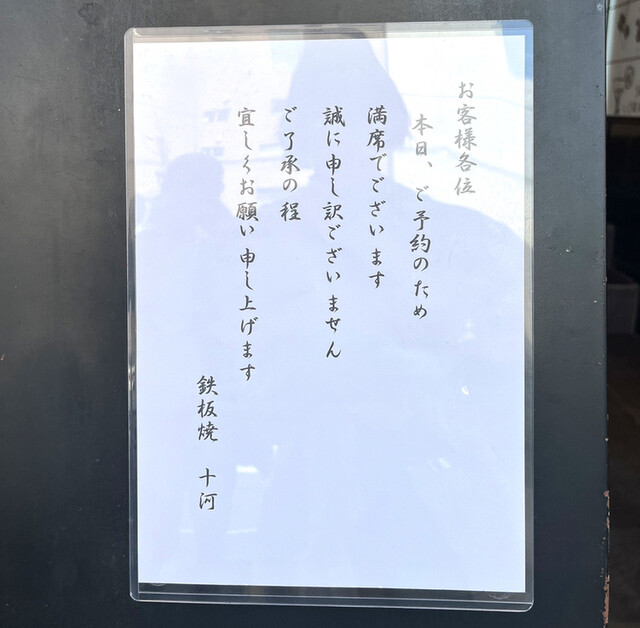 お客様各位
本日、ご予約のため
満席でございます
誠に申し訳ございません
ご了承の程
宜しくお願い申し上げます
鉄板焼 十河